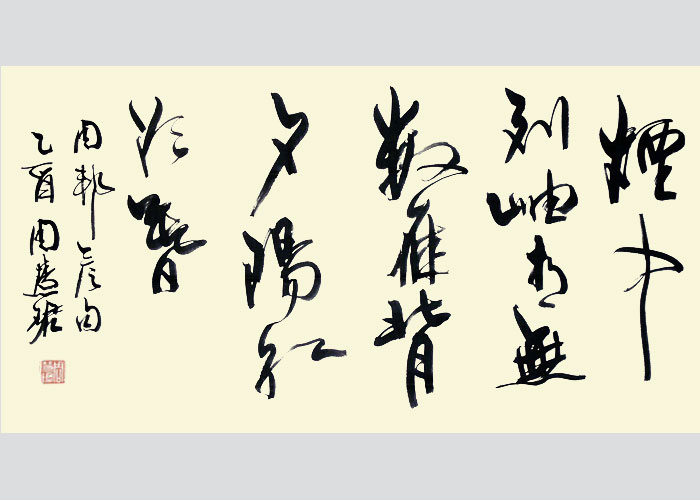 煙中
列岫青無
數雁背
夕陽紅
欲暮
周邦彥句
乙酉周慧珺